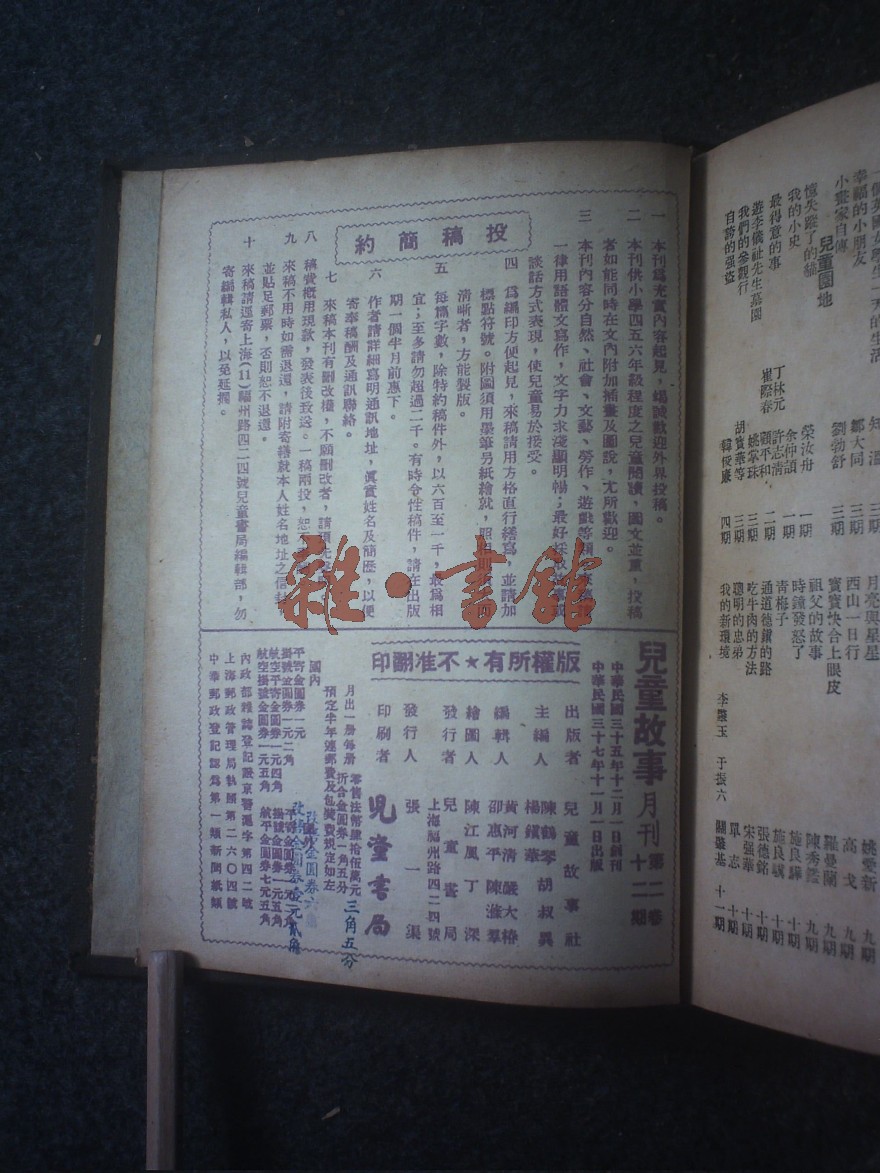 投稿簡約
一 本刊爲充實內容起見，竭誠歡迎外界投稿。
二 本刊供小學四五六年級程度之兒童閱讀，圖文並重，投稿
者如能同時在文內附加插畫及圖說，尤所歡迎。
三 本刊內容分自然、社會、文藝、勞作、遊戲等
一律用語體文寫作，文字力求淺顯明暢；最好
談話方式表現，使兒童易於接受。
四 爲編印方便起見，來稿請用方格直行繕寫，並請加
標點符號。附圖須用墨筆另紙繪就，照
清晰者，方能製版。
五 每篇字數，除特約稿件外，以六百至一千，最爲相
宜；至多請勿超過二千。有時令性稿件，請在出版
期一個半月前惠下。
六 作者請詳細寫明通訊地址，眞實姓名及簡歷，以便
寄奉稿酬及通訊聯絡。
七 來稿本刊有刪改權，不願刪改者，請預先
八 稿費概用現款，發表後致送。一稿兩投，恕
九 來稿不用時如需退還，請附寄繕就本人姓名地址之信封
並貼足郵票，否則恕不退還。
十 來稿請逕寄上海(11)福州路四二四號兒童書局編輯部，勿
寄編輯私人，以免延擱。
雜·書館
兒童故事月刊 第二卷 十二期
中華民國三十五年十二月一日創刊
中華民國三十七年十一月一日出版
版權所有★不准翻印
出版者 兒童故事社
主編人 陳鶴琴 胡叔異
楊鎭華
編輯人 黃河清 嚴大椿
邵惠平 陳滋羣
繪圖人 陳江風 丁深
發行者 兒童書局
上海福州路四二四號
發行人 張一渠
印刷者 兒童書局
月出一册每册 零售法幣肆拾伍萬元
折合金圓券一角五分
三角五分
預定半年連郵費及包裝費規定如左
國內
平寄金圓券一元
掛號金圓券一元二角
航空平寄金圓券一元四角
航空掛號金圓券一元五角
改售金圓券六
改售金圓券壹元貳角
內政部雜誌登記證京警滬字第四二號
上海郵政管理局執照第二六〇四號
中華郵政登記認爲第一類新聞紙類
幸福的小朋友 鄒大同 三期
小畫家自傳 劉勃舒 三期
兒童園地
憶失蹤了的貓 榮汝舟 一期
我的小史 余仲頡 一期
最得意的事 丁林元 許志清
崔際春 顧平和 二期
遊李儀祉先生墓園 姚家珠 三期
我們的參觀行 胡寶華等 三期
自誇的强盜 韓俊廉 四期
月亮與星星 姚愛新 九期
西山一日行 高戈 九期
寶寶快合上眼皮 羅曼蘭 九期
祖父的故事 陳秀鑑 九期
時鐘發怒了 施良驊 十期
靑梅子 施良驥 十期
通道德鎭的路 張德銘 十期
吃牛肉的方法 宋强華 十期
聰明的忠弟 單志 十期
我的新環境 李馥玉 于振六 關肇基 十一期